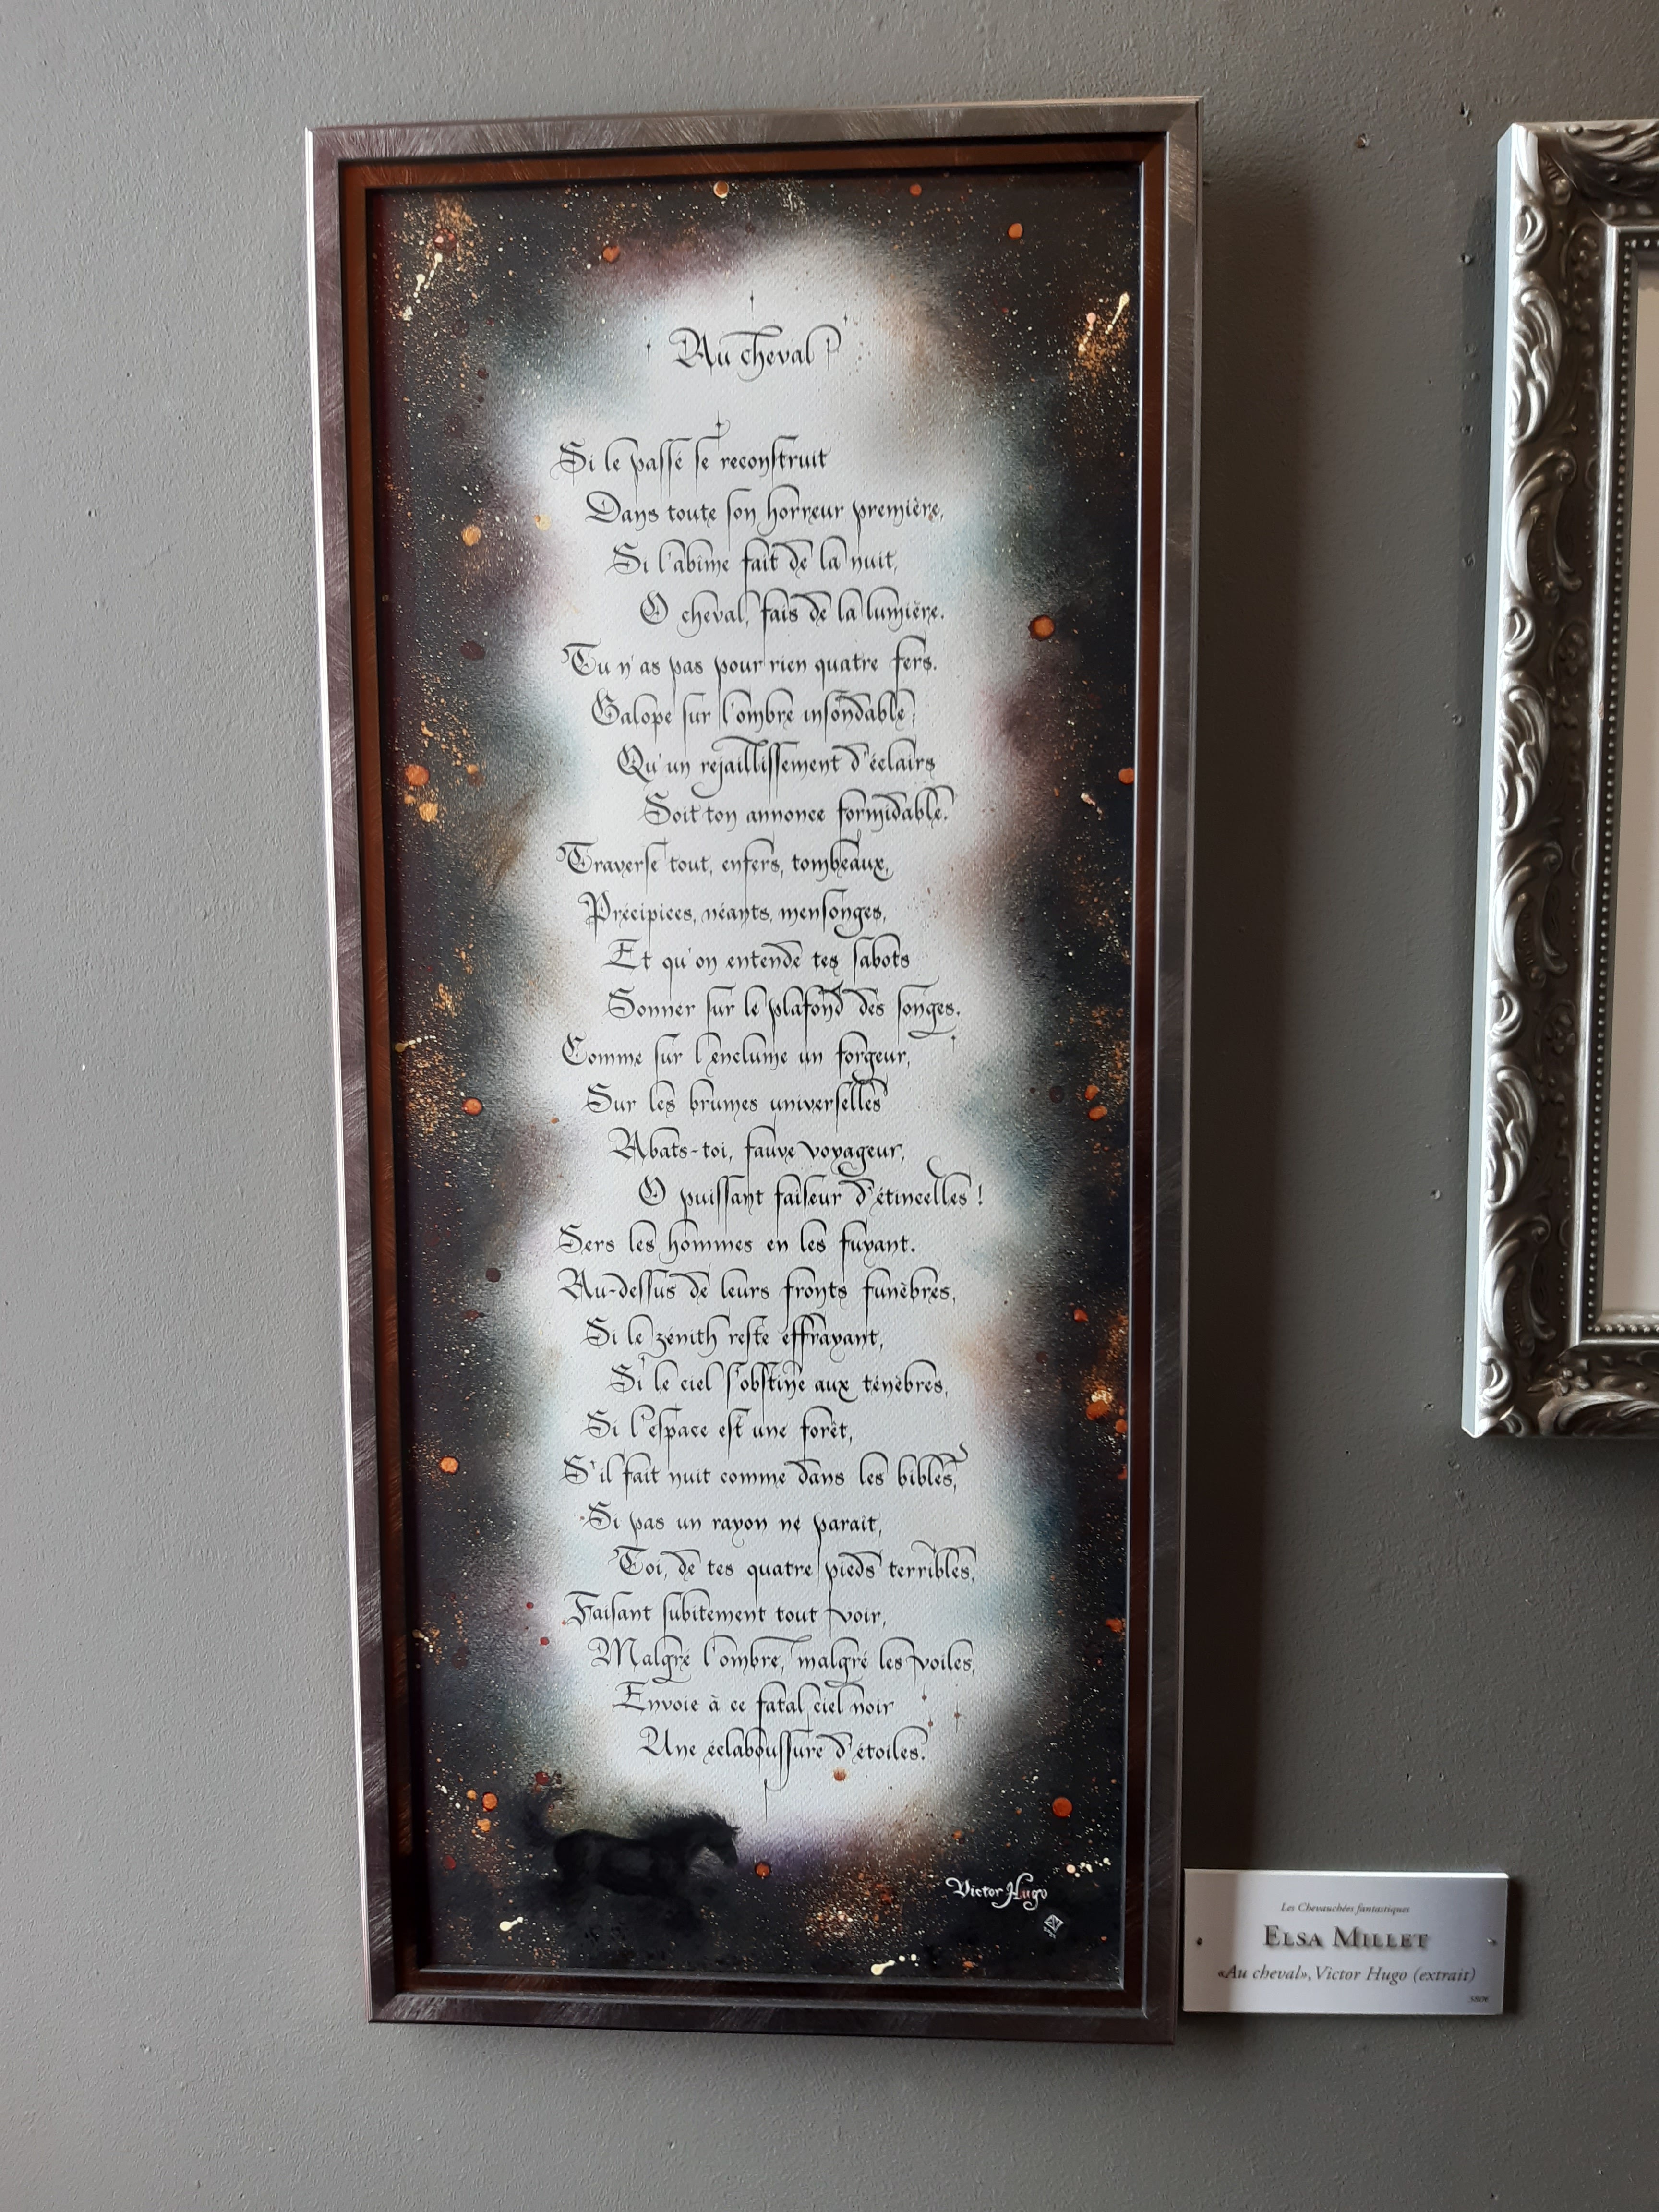 Au cheval
Si le passé se reconstruit
Dans toute son horreur première,
Si l'abîme fait de la nuit,
O cheval, fais de la lumière.
Tu n'as pas pour rien quatre fers.
Galope sur l'ombre insondable ;
Qu'un rejaillissement d'éclairs
Soit ton annonce formidable.
Traverse tout, enfers, tombeaux,
Précipices, néants, mensonges,
Et qu'on entende tes sabots
Sonner sur le plafond des songes.
Comme sur l'enclume un forgeur,
Sur les brumes universelles
Abats-toi, fauve voyageur,
O puissant faiseur d'étincelles !
Sers les hommes en les fuyant.
Au-dessus de leurs fronts funèbres,
Si le zénith reste effrayant,
Si le ciel s'obstine aux ténèbres,
Si l'espace est une forêt,
S'il fait nuit comme dans les bibles,
Si pas un rayon ne paraît,
Toi, de tes quatre pieds terribles,
Faisant subitement tout voir,
Malgré l'ombre, malgré les voiles,
Envoie à ce fatal ciel noir
Une éclaboussure d'étoiles.
Victor Hugo
Les Chevauchées fantastiques
ELSA MILLET
«Au cheval», Victor Hugo (extrait)